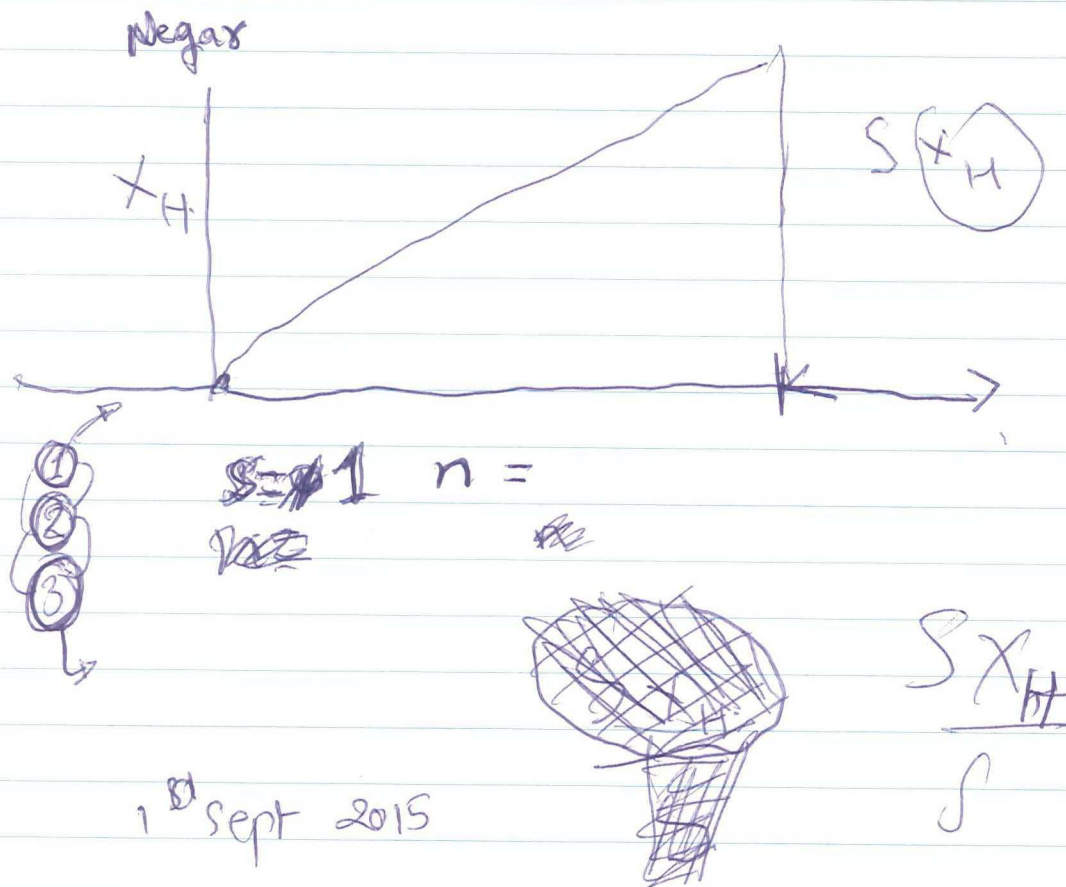 Negar
X_H
S X_H
1
2
3
1 n =
S X_H
S
1st Sept 2015